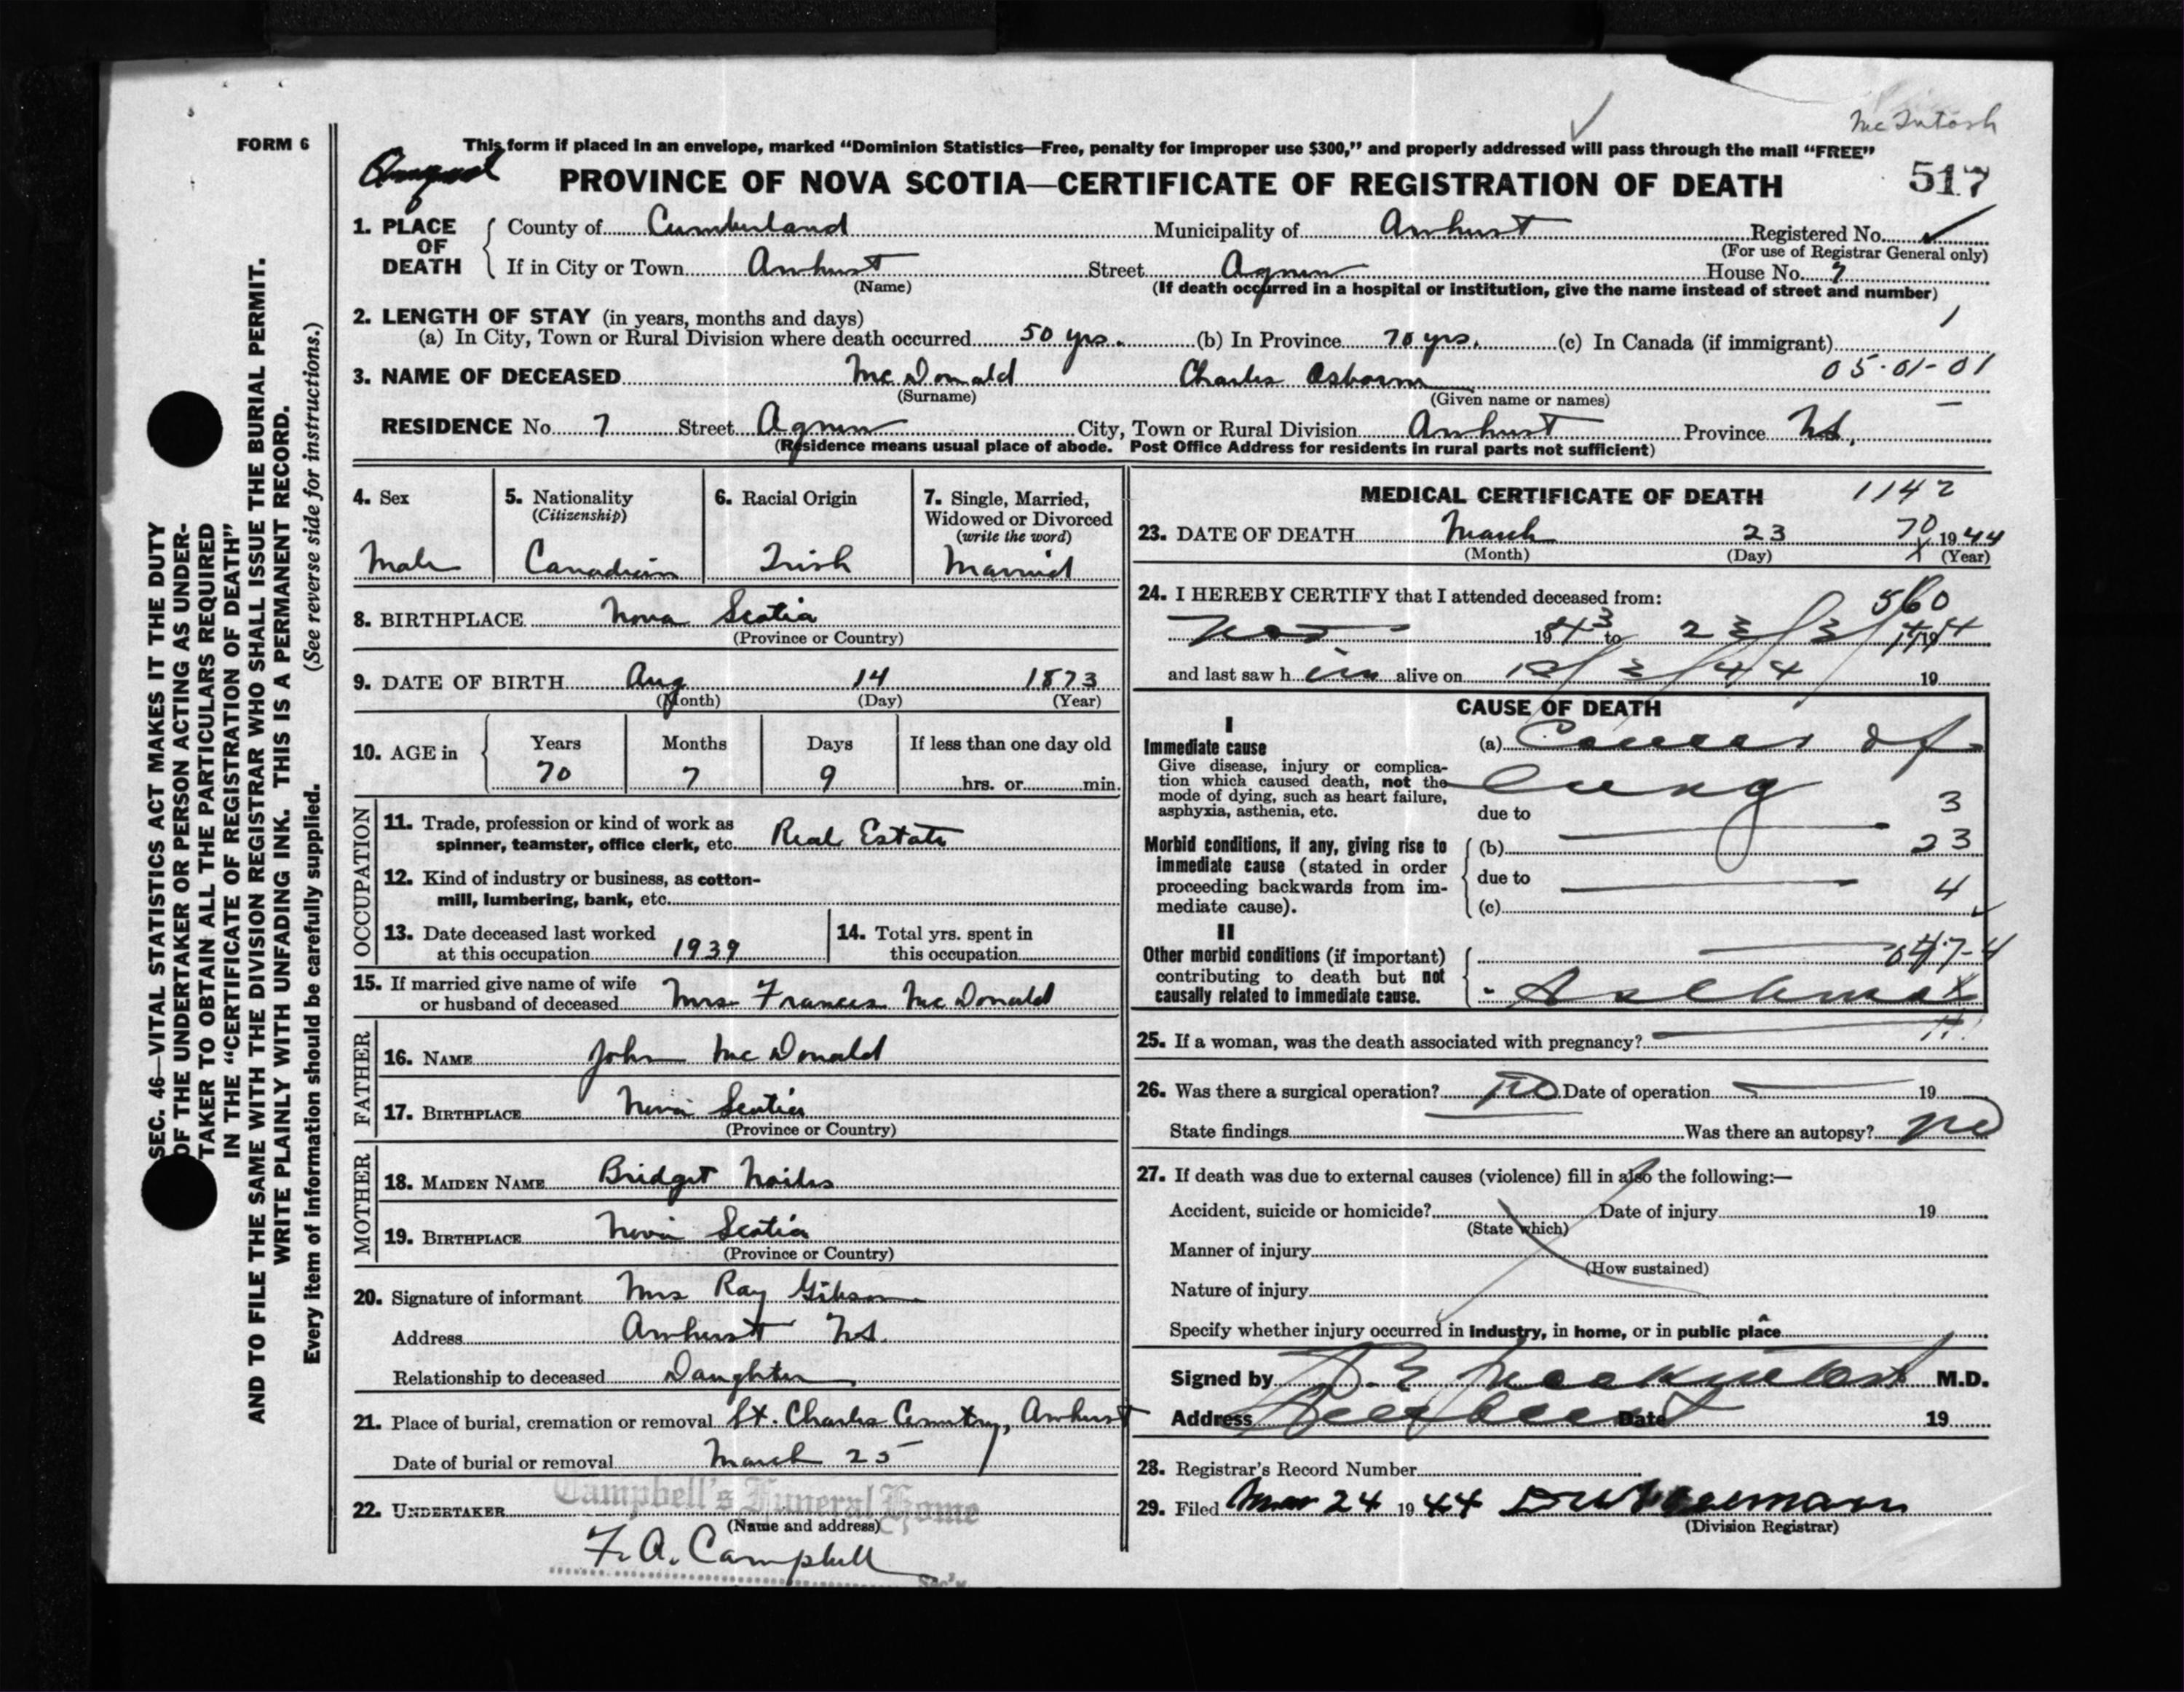 McIntosh
FORM 6
This form if placed in an envelope, marked “Dominion Statistics—Free, penalty for improper use $300,” and properly addressed will pass through the mail “FREE”
PROVINCE OF NOVA SCOTIA—CERTIFICATE OF REGISTRATION OF DEATH
517
1. PLACE OF DEATH
County of Cumberland Municipality of Amherst Registered No.
(For use of Registrar General only)
If in City or Town Amherst Street Agnew House No. 7
(Name) (If death occurred in a hospital or institution, give the name instead of street and number)
2. LENGTH OF STAY (in years, months and days)
(a) In City, Town or Rural Division where death occurred 50 yrs. (b) In Province 70 yrs. (c) In Canada (if immigrant)
05-01-01
3. NAME OF DECEASED McDonald Charles Osborne
(Surname) (Given name or names)
RESIDENCE No. 7 Street Agnew City, Town or Rural Division Amherst Province N.S.
(Residence means usual place of abode. Post Office Address for residents in rural parts not sufficient)
SEC. 46—VITAL STATISTICS ACT MAKES IT THE DUTY
OF THE UNDERTAKER OR PERSON ACTING AS UNDER-
TAKER TO OBTAIN ALL THE PARTICULARS REQUIRED
IN THE “CERTIFICATE OF REGISTRATION OF DEATH”
AND TO FILE THE SAME WITH THE DIVISION REGISTRAR WHO SHALL ISSUE THE BURIAL PERMIT.
WRITE PLAINLY WITH UNFADING INK. THIS IS A PERMANENT RECORD.
Every item of information should be carefully supplied. (See reverse side for instructions.)
4. Sex
Male
5. Nationality
(Citizenship)
Canadian
6. Racial Origin
Irish
7. Single, Married,
Widowed or Divorced
(write the word)
Married
8. BIRTHPLACE Nova Scotia
(Province or Country)
9. DATE OF BIRTH Aug 14 1873
(Month) (Day) (Year)
10. AGE in
Years Months Days If less than one day old
70 7 9 hrs. or min.
OCCUPATION
11. Trade, profession or kind of work as
spinner, teamster, office clerk, etc. Real Estate
12. Kind of industry or business, as cotton-
mill, lumbering, bank, etc.
13. Date deceased last worked
at this occupation 1939
14. Total yrs. spent in
this occupation
15. If married give name of wife
or husband of deceased Mrs Frances McDonald
FATHER
16. NAME John McDonald
17. BIRTHPLACE Nova Scotia
(Province or Country)
MOTHER
18. MAIDEN NAME Bridget Noiles
19. BIRTHPLACE Nova Scotia
(Province or Country)
20. Signature of informant Mrs Ray Gibson
Address Amherst N.S.
Relationship to deceased Daughter
21. Place of burial, cremation or removal St. Charles Cemetry, Amherst
Date of burial or removal March 25
22. UNDERTAKER Campbell's Funeral Home
(Name and address)
F. A. Campbell
Sec'y
MEDICAL CERTIFICATE OF DEATH 1142
23. DATE OF DEATH March 23 70 1944
(Month) (Day) (Year)
24. I HEREBY CERTIFY that I attended deceased from:
560
Nov 1943 to 23/3/44 19
and last saw him alive on 19
CAUSE OF DEATH
I
Immediate cause
Give disease, injury or complica-
tion which caused death, not the
mode of dying, such as heart failure,
asphyxia, asthenia, etc.
(a) Cancer of
lung
3
due to
Morbid conditions, if any, giving rise to
immediate cause (stated in order
proceeding backwards from im-
mediate cause).
(b) 23
due to 4
(c)
II
Other morbid conditions (if important)
contributing to death but not
causally related to immediate cause.
047-4
Asthma
25. If a woman, was the death associated with pregnancy?
26. Was there a surgical operation? no Date of operation 19
State findings Was there an autopsy? no
27. If death was due to external causes (violence) fill in also the following:—
Accident, suicide or homicide? Date of injury 19
(State which)
Manner of injury
(How sustained)
Nature of injury
Specify whether injury occurred in industry, in home, or in public place
Signed by M.D.
Address Amherst Date 19
28. Registrar's Record Number
29. Filed Mar 24 1944
(Division Registrar)